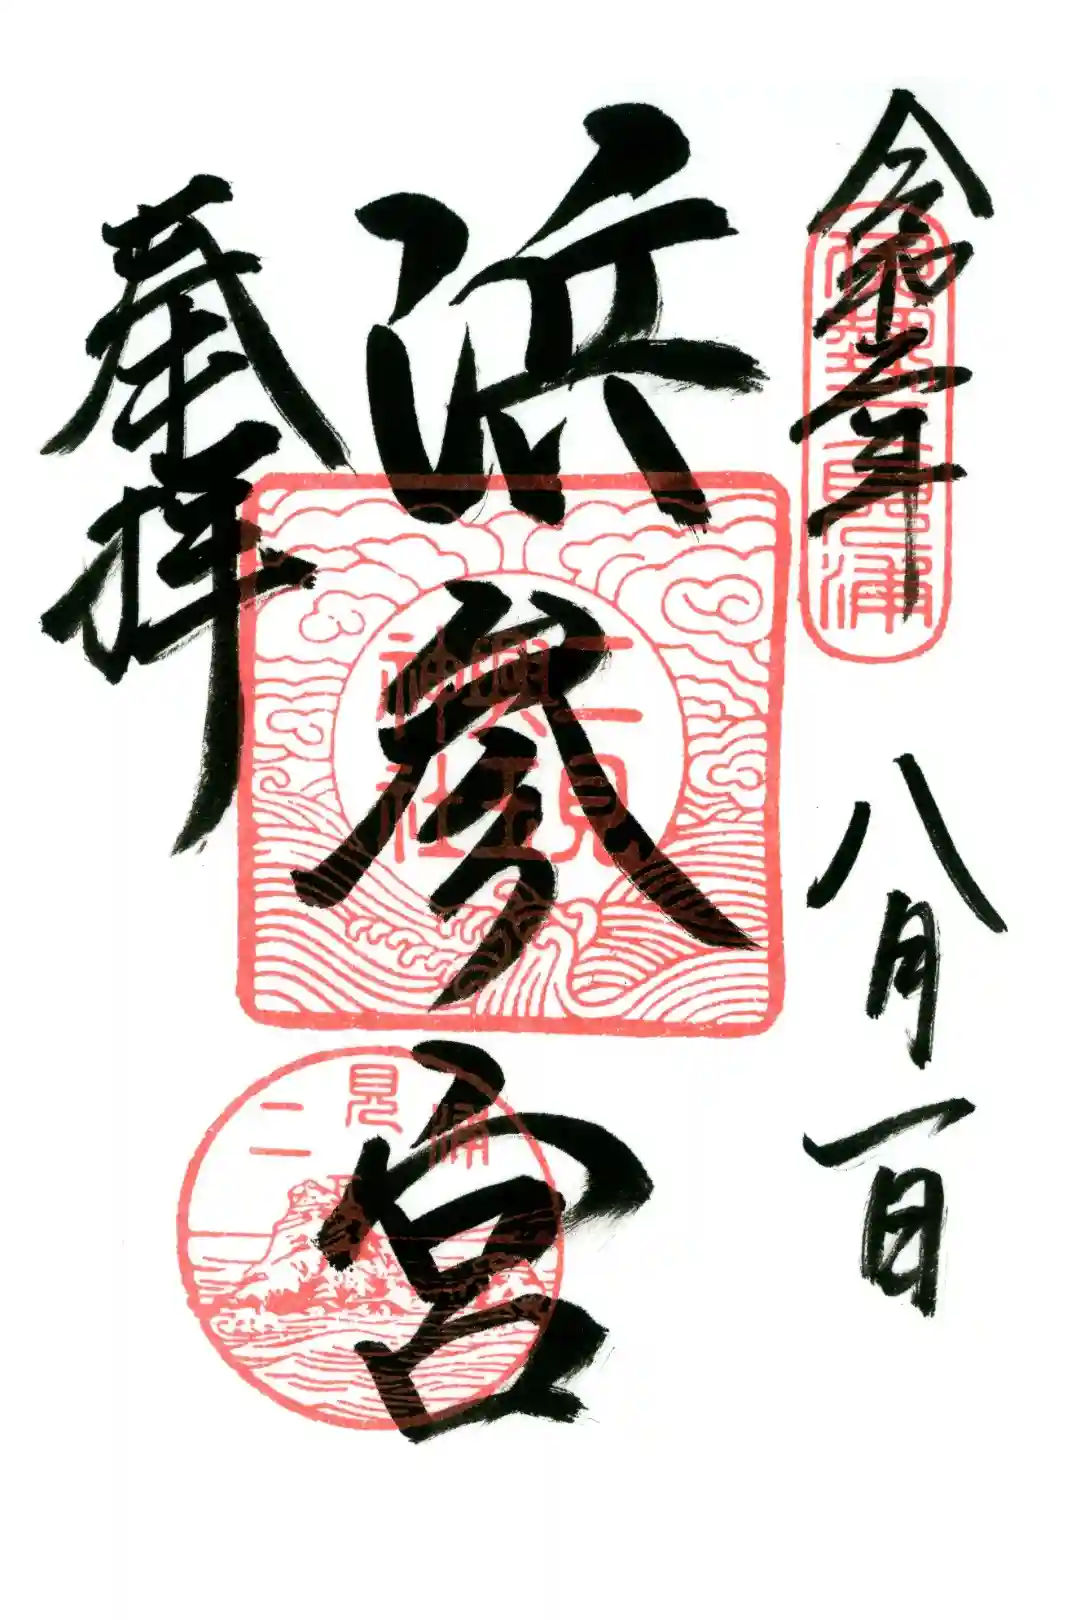 令和二年
八月一日
伊勢二見浦
浜参宮
二見
興玉
神社
二見浦
奉拝